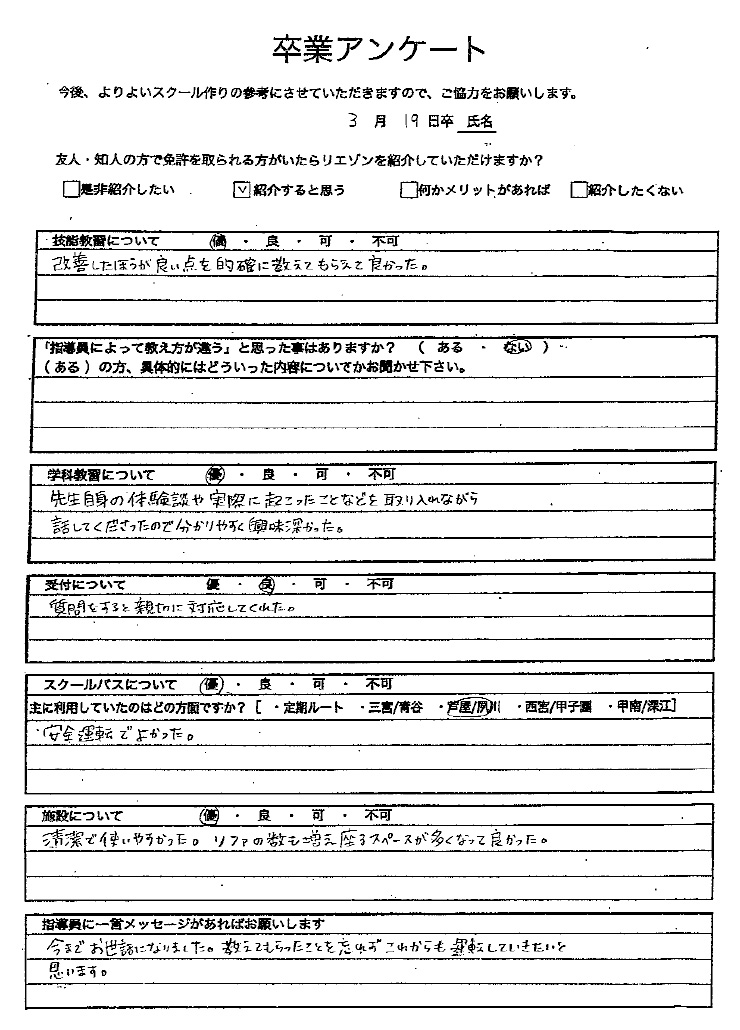 卒業アンケート
今後、よりよいスクール作りの参考にさせていただきますので、ご協力をお願いします。
3 月 19 日卒 氏名
友人・知人の方で免許を取られる方がいたらリエゾンを紹介していただけますか?
□是非紹介したい ☑紹介すると思う □何かメリットがあれば □紹介したくない
技能教習について 優 ・ 良 ・ 可 ・ 不可
改善したほうが良い点を的確に教えてもらえて良かった。
「指導員によって教え方が違う」と思った事はありますか? ( ある ・ ない )
( ある ) の方、具体的にはどういった内容についてかお聞かせ下さい。
学科教習について 優 ・ 良 ・ 可 ・ 不可
先生自身の体験談や実際に起こったことなどを取り入れながら
話してくださったので分かりやすく興味深かった。
受付について 優 ・ 良 ・ 可 ・ 不可
質問をすると親切に対応してくれた。
スクールバスについて 優 ・ 良 ・ 可 ・ 不可
主に利用していたのはどの方面ですか? [ ・定期ルート ・三宮/青谷 ・芦屋/夙川 ・西宮/甲子園 ・甲南/深江]
安全運転でよかった。
施設について 優 ・ 良 ・ 可 ・ 不可
清潔で使いやすかった。ソファの数も増え座るスペースが多くなって良かった。
指導員に一言メッセージがあればお願いします
今までお世話になりました。教えてもらったことを忘れずこれからも運転していきたいと
思います。